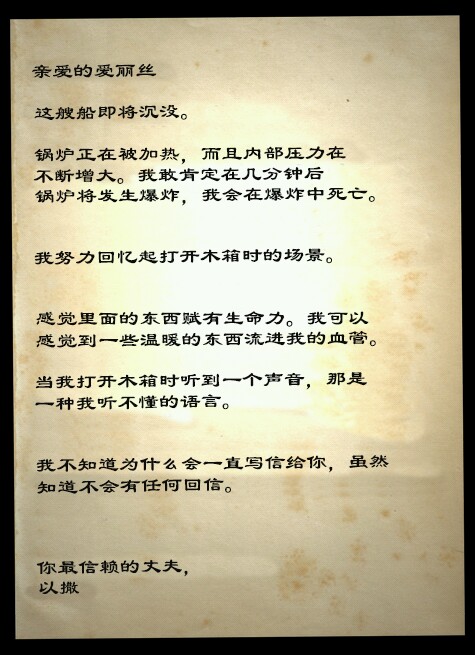 亲爱的爱丽丝
这艘船即将沉没。
锅炉正在被加热，而且内部压力在
不断增大。我敢肯定在几分钟后
锅炉将发生爆炸，我会在爆炸中死亡。
我努力回忆起打开木箱时的场景。
感觉里面的东西赋有生命力。我可以
感觉到一些温暖的东西流进我的血管。
当我打开木箱时听到一个声音，那是
一种我听不懂的语言。
我不知道为什么会一直写信给你，虽然
知道不会有任何回信。
你最信赖的丈夫，
以撒